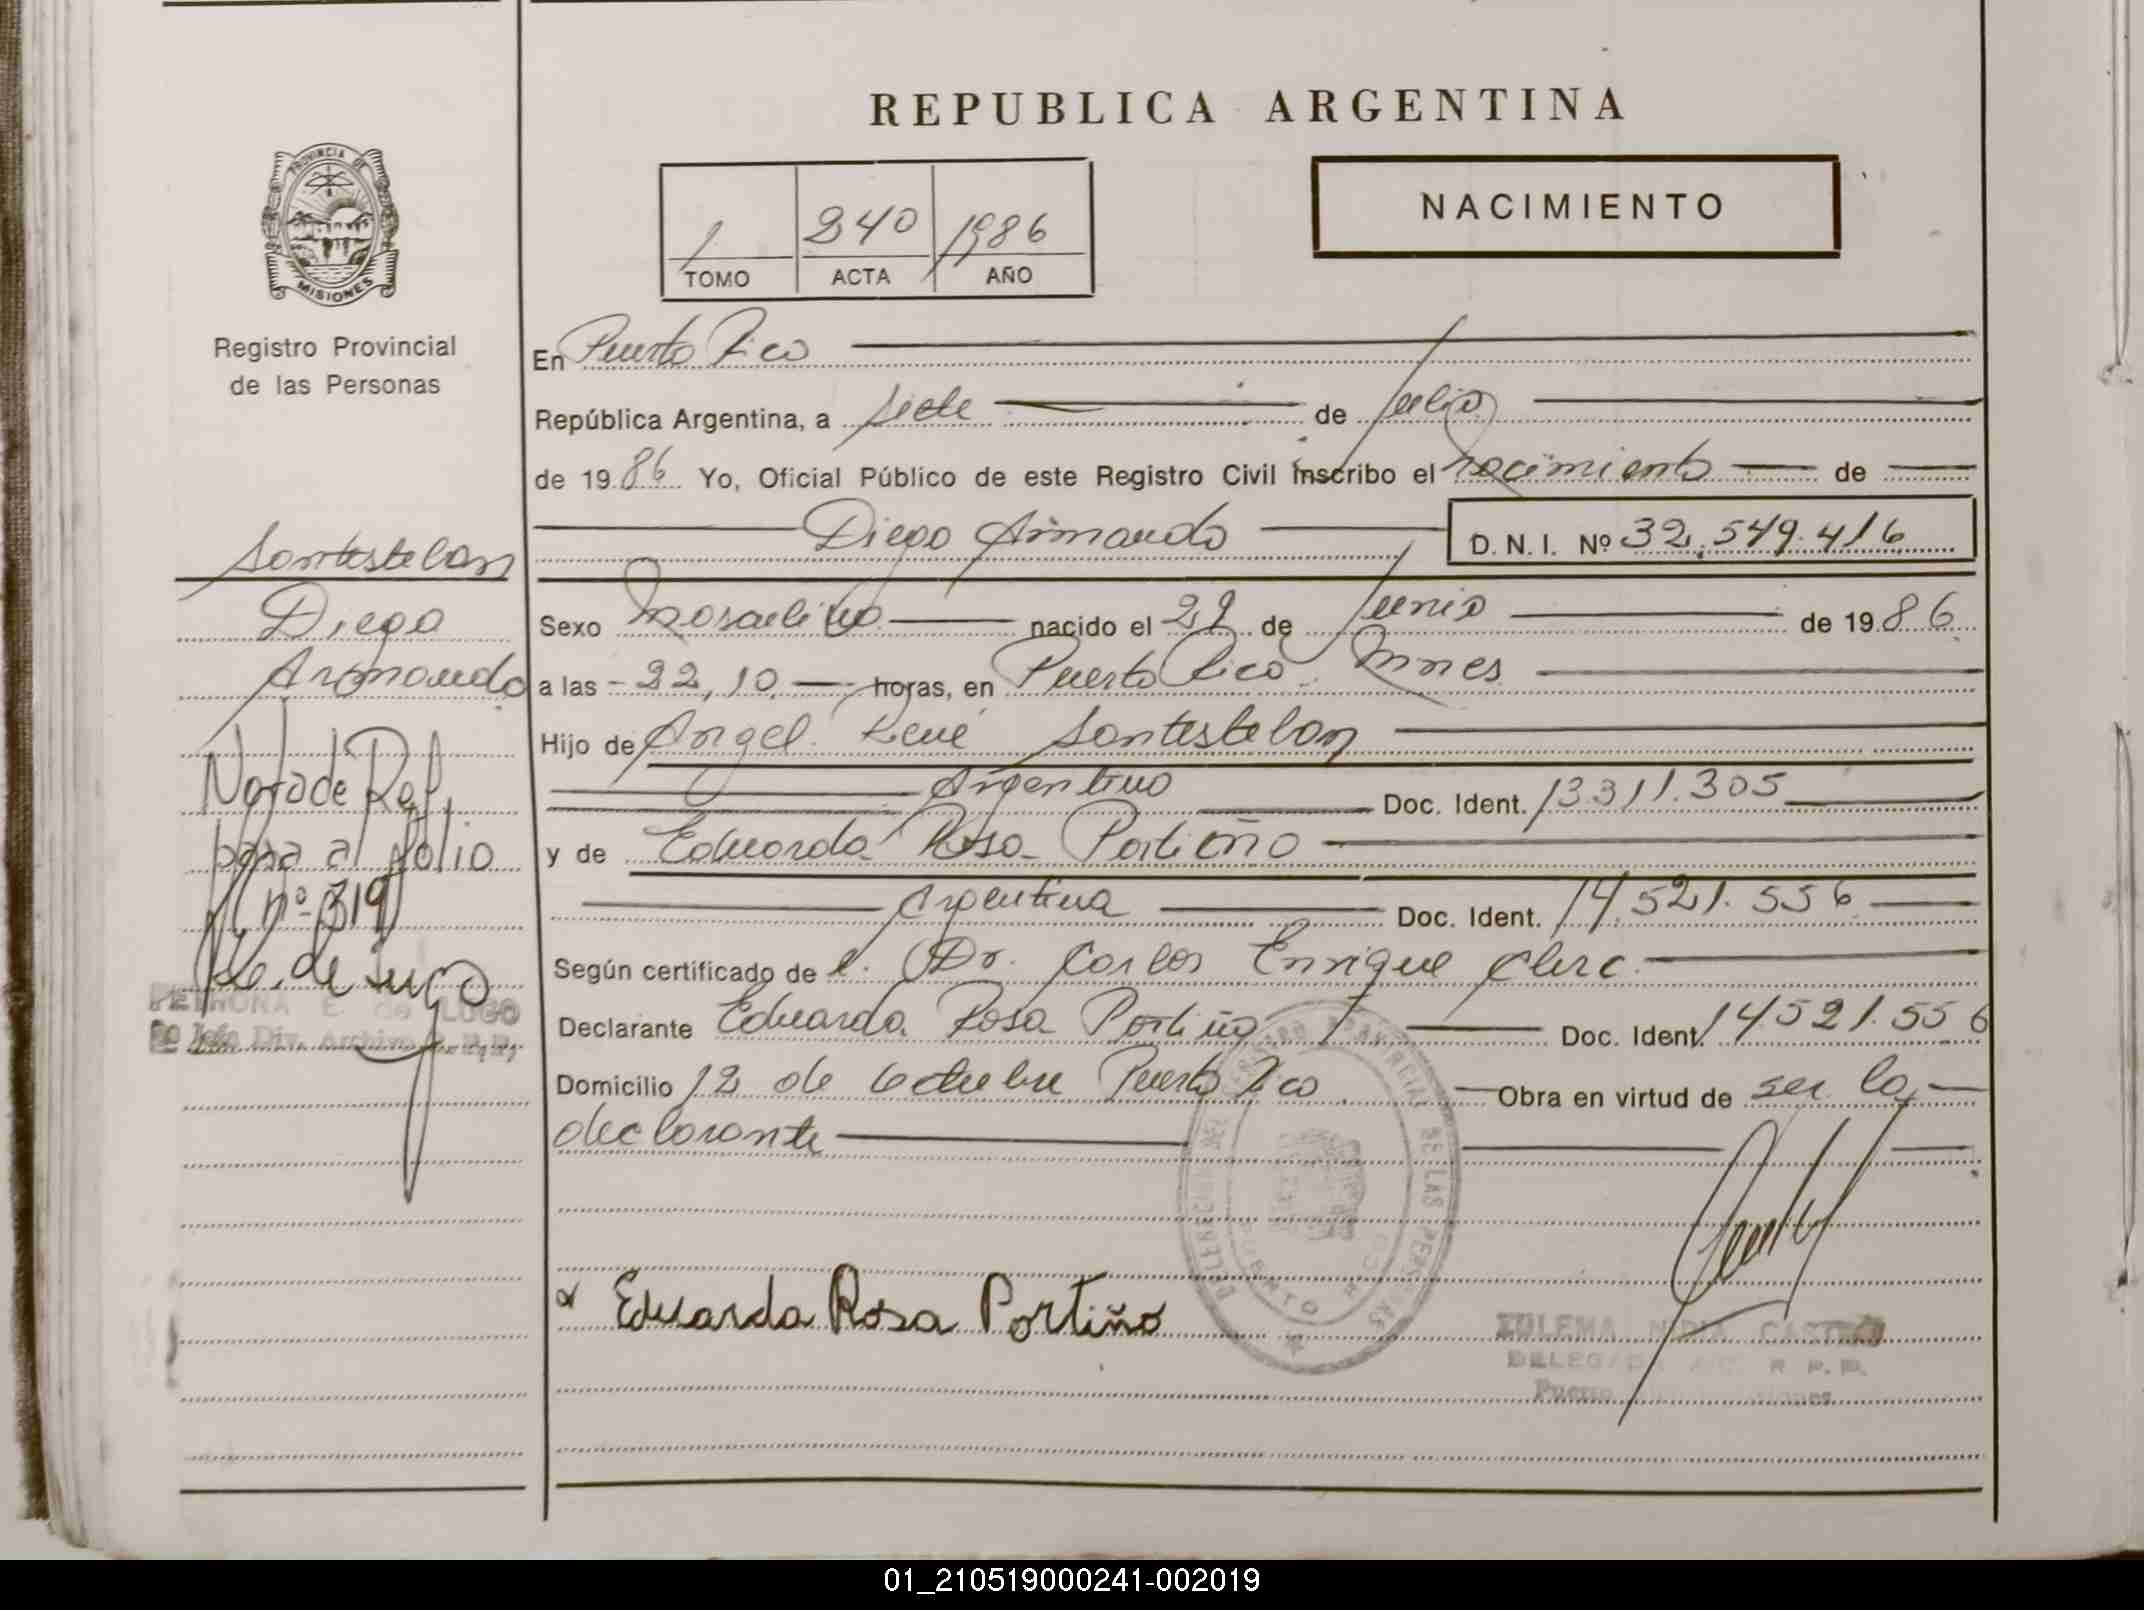 REPUBLICA ARGENTINA
PROVINCIA DE
MISIONES
Registro Provincial
de las Personas
1 240 1986
TOMO ACTA AÑO
NACIMIENTO
En Puerto Rico
República Argentina, a siete de julio
de 1986 Yo, Oficial Público de este Registro Civil inscribo el nacimiento de
Diego Armando D.N.I. Nº 32.549.416
Sexo masculino nacido el 29 de junio de 1986
a las - 22,10 horas, en Puerto Rico. Mnes
Hijo de Angel René Santestelan
Argentino Doc. Ident. 13311.305
y de Eduarda Rosa Portiño
Argentina Doc. Ident. 14.521.556
Según certificado de l. Dr. Carlos Enrique Clerc.
Declarante Eduarda Rosa Portiño Doc. Ident. 14521.556
Domicilio 12 de Octubre Puerto Rico Obra en virtud de ser la
declarante
Eduarda Rosa Portiño
ZULEMA NIDIA CASTRO
DELEGADA R.P.P.
Santestelan
Diego
Armando
Nota de Ref.
pasa al folio
nº 319
PETRONA E. de LUGO
Jefe Div. Archivo R.P.P.
REGISTRO PROVINCIAL DE LAS PERSONAS
DELEGACION
PUERTO RICO
01_210519000241-002019